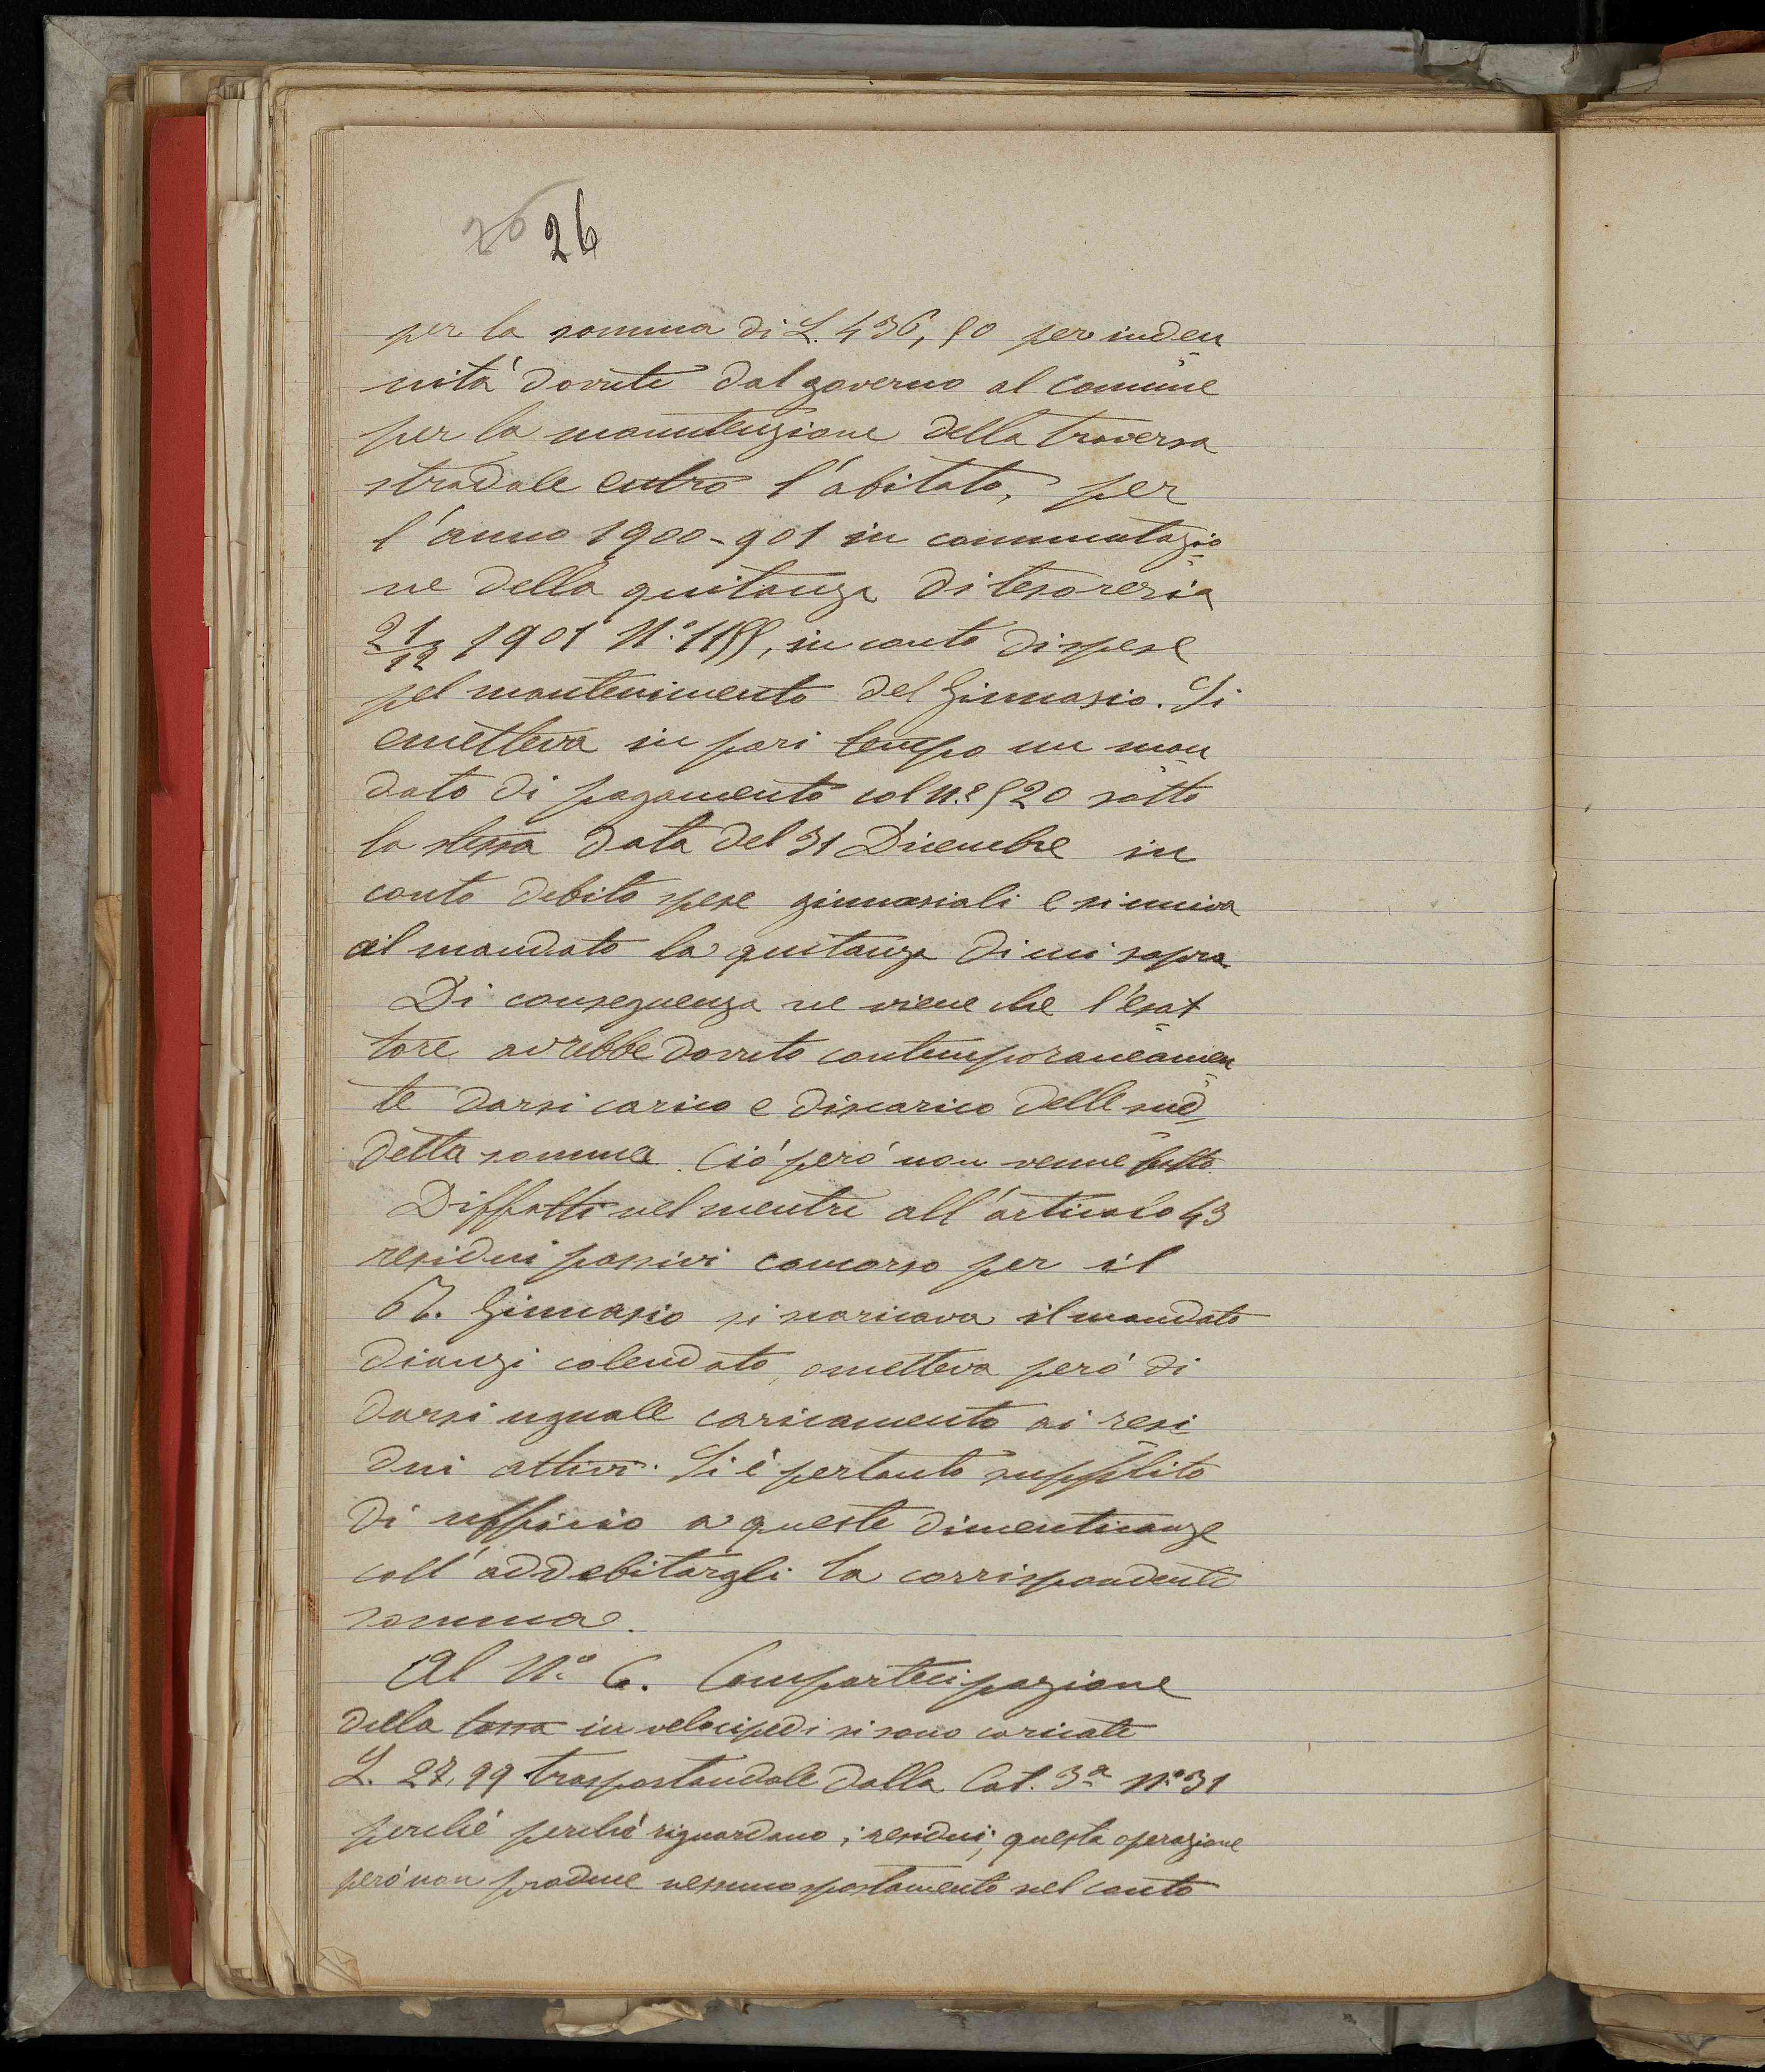 26 26
per la somma di L. 436,50 per inden
nità dovute dal governo al comune
per la manutenzione della traversa
stradale entro l'abitato, per
l'anno 1900-901 in commutazio
ne della quitanza di tesoreria
21/12 1901 N.° 1155, in conto di spese
pel mantenimento del Ginnasio. Si
emetteva in pari tempo un man
dato di pagamento col N.° 520 sotto
la stessa data del 31 Dicembre in
conto debito spese ginnasiali e si univa
al mandato la quitanza di cui sopra
Di conseguenza ne viene che l'esat
tore avrebbe dovuto contemporaneamen
te darsi carico e discarico delle sud
detta somma. Ciò però non venne fatto.
Diffatti nel mentre all'articolo 43
residui passivi concorso per il
Ginnasio si scaricava il mandato
dianzi calendato, ometteva però di
darsi uguale caricamento ai resi
dui attivi. Si è pertanto supplito
di ufficio a queste dimenticanze
coll'addebitargli la corrispondente
somma.
Al N.° 6. Compartecipazione
della tassa in velocipedi si sono caricate
L. 27,99 trasportandole dalla Cat. 3ª N.° 31
perchè perchè riguardano i residui; questa operazione
però non produce nessuno spostamento nel conto